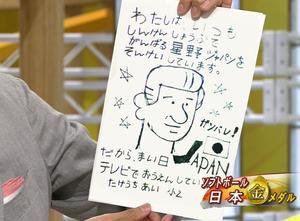 わたしは いつも
しんけんしょうぶで
がんばる星野ジャパンを
そんけいしています。
ガンバレ!
JAPAN
だから、まい日
テレビでおうえんしてい
たけうちあい 小2
ソフトボール
日本金メダル